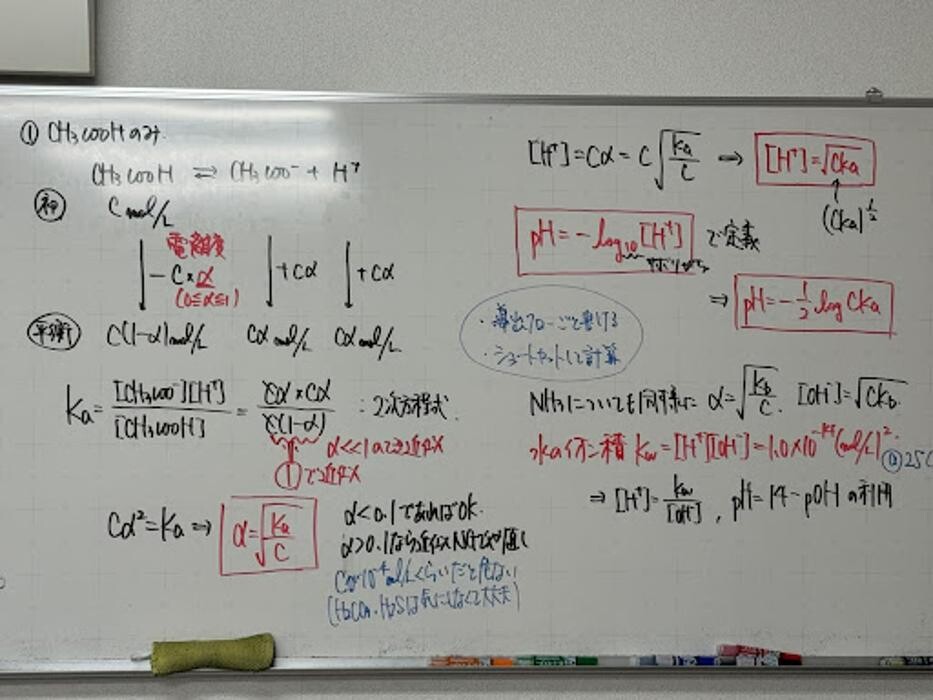 ① CH₃COOHのみ.
CH₃COOH ⇌ CH₃COO⁻ + H⁺
初 C mol/L
電離度
−C×α +Cα +Cα
(0≦α≦1)
平衡 C(1−α)mol/L Cα mol/L Cα mol/L
Ka = [CH₃COO⁻][H⁺] / [CH₃COOH] = Cα×Cα / C(1−α) : 2次方程式.
α<<1のとき近似
1で近似
Cα² = Ka ⇒ α = √(Ka/C)
α<0.1であればOK.
α>0.1なら近似NGでやり直し
10⁻⁴mol/Lくらいだと危ない
(H₂CO₃, H₂Sは気にしなくて大丈夫)
[H⁺] = Cα = C√(Ka/C) ⇒ [H⁺] = √CKa
↑
(CKa)^½
pH = −log₁₀[H⁺] で定義
⇒ pH = −½ log CKa
・導出フローごと書ける
・ショートカットして計算
NH₃についても同様に α = √(Kb/C). [OH⁻] = √CKb.
水のイオン積 Kw = [H⁺][OH⁻] = 1.0×10⁻¹⁴(mol/L)². @25
⇒ [H⁺] = Kw/[OH⁻], pH = 14 − pOH の利用